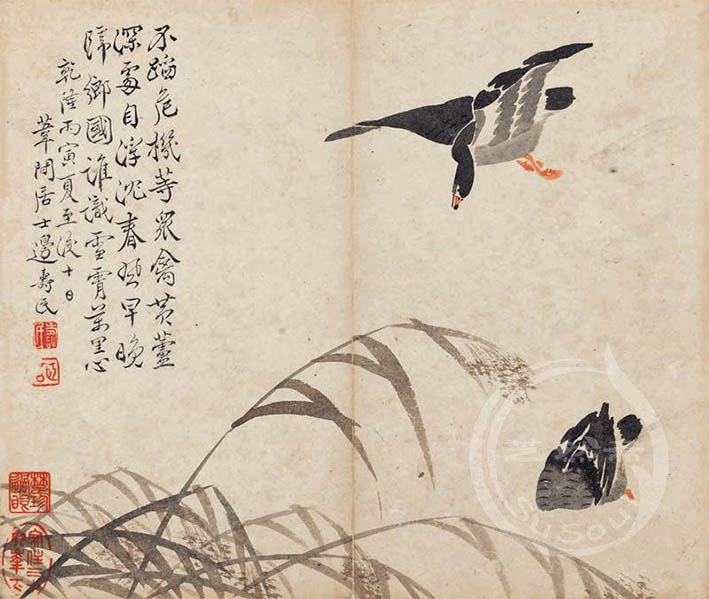 不蹈危機等眾禽黄蘆
深處自浮沉春風早晚
歸鄉國誰識雲霄萬里心
乾隆丙寅夏至後十日
葦間居士邊壽民